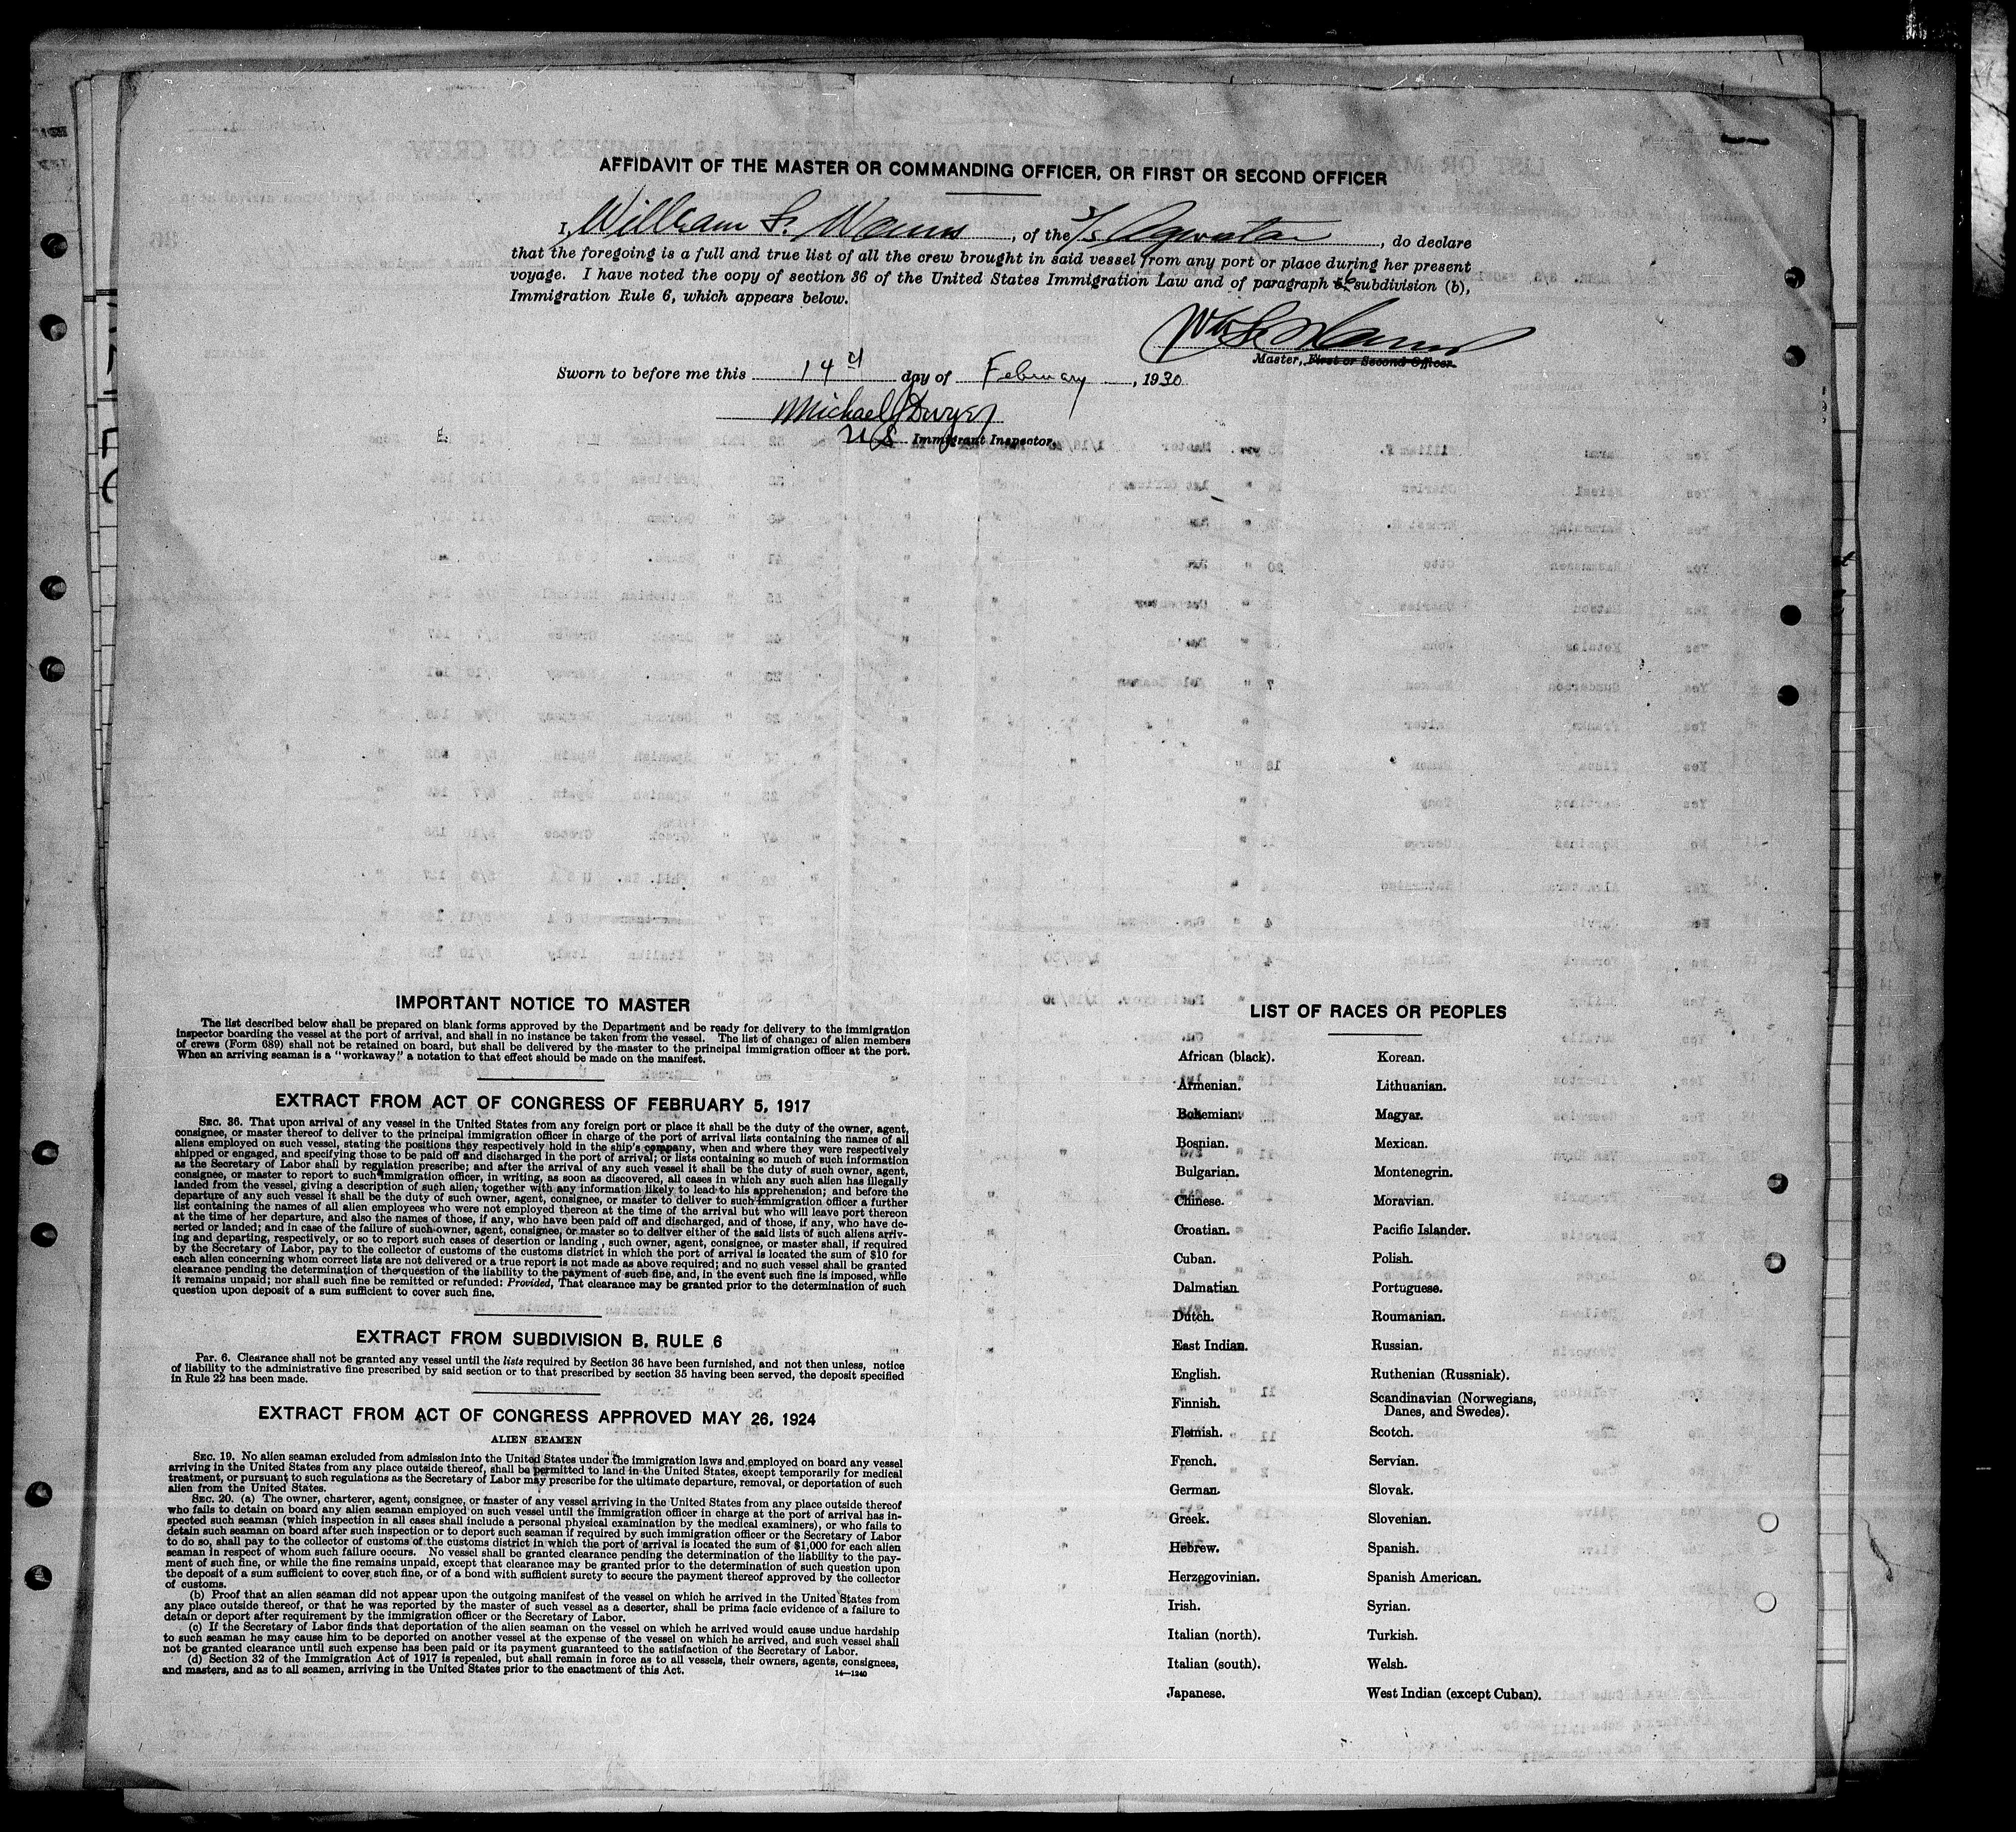 AFFIDAVIT OF THE MASTER OR COMMANDING OFFICER, OR FIRST OR SECOND OFFICER
I, William, of the S/S Agwistar, do declare
that the foregoing is a full and true list of all the crew brought in said vessel from any port or place during her present
voyage. I have noted the copy of section 36 of the United States Immigration Law and of paragraph 6 subdivision (b),
Immigration Rule 6, which appears below.
Master, First or Second Officer.
Sworn to before me this 14 day of February, 1930
Michael J Dwyer
U S Immigrant Inspector.
IMPORTANT NOTICE TO MASTER
The list described below shall be prepared on blank forms approved by the Department and be ready for delivery to the immigration
inspector boarding the vessel at the port of arrival, and shall in no instance be taken from the vessel. The list of changes of alien members
of crews (Form 689) shall not be retained on board, but shall be delivered by the master to the principal immigration officer at the port.
When an arriving seaman is a "workaway" a notation to that effect should be made on the manifest.
EXTRACT FROM ACT OF CONGRESS OF FEBRUARY 5, 1917
SEC. 36. That upon arrival of any vessel in the United States from any foreign port or place it shall be the duty of the owner, agent,
consignee, or master thereof to deliver to the principal immigration officer in charge of the port of arrival lists containing the names of all
aliens employed on such vessel, stating the positions they respectively hold in the ship's company, when and where they were respectively
shipped or engaged, and specifying those to be paid off and discharged in the port of arrival; or lists containing so much of such information
as the Secretary of Labor shall by regulation prescribe; and after the arrival of any such vessel it shall be the duty of such owner, agent,
consignee, or master to report to such immigration officer, in writing, as soon as discovered, all cases in which any such alien has illegally
landed from the vessel, giving a description of such alien, together with any information likely to lead to his apprehension; and before the
departure of any such vessel it shall be the duty of such owner, agent, consignee, or master to deliver to such immigration officer a further
list containing the names of all alien employees who were not employed thereon at the time of the arrival but who will leave port thereon
at the time of her departure, and also the names of those, if any, who have been paid off and discharged, and of those, if any, who have de-
serted or landed; and in case of the failure of such owner, agent, consignee, or master so to deliver either of the said lists of such aliens arriv-
ing and departing, respectively, or so to report such cases of desertion or landing, such owner, agent, consignee, or master shall, if required
by the Secretary of Labor, pay to the collector of customs of the customs district in which the port of arrival is located the sum of $10 for
each alien concerning whom correct lists are not delivered or a true report is not made as above required; and no such vessel shall be granted
clearance pending the determination of the question of the liability to the payment of such fine, and, in the event such fine is imposed, while
it remains unpaid; nor shall such fine be remitted or refunded: Provided, That clearance may be granted prior to the determination of such
question upon deposit of a sum sufficient to cover such fine.
EXTRACT FROM SUBDIVISION B, RULE 6
PAR. 6. Clearance shall not be granted any vessel until the lists required by Section 36 have been furnished, and not then unless, notice
of liability to the administrative fine prescribed by said section or to that prescribed by section 35 having been served, the deposit specified
in Rule 22 has been made.
EXTRACT FROM ACT OF CONGRESS APPROVED MAY 26, 1924
ALIEN SEAMEN
SEC. 19. No alien seaman excluded from admission into the United States under the immigration laws and employed on board any vessel
arriving in the United States from any place outside thereof, shall be permitted to land in the United States, except temporarily for medical
treatment, or pursuant to such regulations as the Secretary of Labor may prescribe for the ultimate departure, removal, or deportation of such
alien from the United States.
SEC. 20. (a) The owner, charterer, agent, consignee, or master of any vessel arriving in the United States from any place outside thereof
who fails to detain on board any alien seaman employed on such vessel until the immigration officer in charge at the port of arrival has in-
spected such seaman (which inspection in all cases shall include a personal physical examination by the medical examiners), or who fails to
detain such seaman on board after such inspection or to deport such seaman if required by such immigration officer or the Secretary of Labor
to do so, shall pay to the collector of customs of the customs district in which the port of arrival is located the sum of $1,000 for each alien
seaman in respect of whom such failure occurs. No vessel shall be granted clearance pending the determination of the liability to the pay-
ment of such fine, or while the fine remains unpaid, except that clearance may be granted prior to the determination of such question upon
the deposit of a sum sufficient to cover such fine, or of a bond with sufficient surety to secure the payment thereof approved by the collector
of customs.
(b) Proof that an alien seaman did not appear upon the outgoing manifest of the vessel on which he arrived in the United States from
any place outside thereof, or that he was reported by the master of such vessel as a deserter, shall be prima facie evidence of a failure to
detain or deport after requirement by the immigration officer or the Secretary of Labor.
(c) If the Secretary of Labor finds that deportation of the alien seaman on the vessel on which he arrived would cause undue hardship
to such seaman he may cause him to be deported on another vessel at the expense of the vessel on which he arrived, and such vessel shall
not be granted clearance until such expense has been paid or its payment guaranteed to the satisfaction of the Secretary of Labor.
(d) Section 32 of the Immigration Act of 1917 is repealed, but shall remain in force as to all vessels, their owners, agents, consignees,
and masters, and as to all seamen, arriving in the United States prior to the enactment of this Act.
14—1240
LIST OF RACES OR PEOPLES
African (black).
Armenian.
Bohemian.
Bosnian.
Bulgarian.
Chinese.
Croatian.
Cuban.
Dalmatian.
Dutch.
East Indian.
English.
Finnish.
Flemish.
French.
German.
Greek.
Hebrew.
Herzegovinian.
Irish.
Italian (north).
Italian (south).
Japanese.
Korean.
Lithuanian.
Magyar.
Mexican.
Montenegrin.
Moravian.
Pacific Islander.
Polish.
Portuguese.
Roumanian.
Russian.
Ruthenian (Russniak).
Scandinavian (Norwegians,
Danes, and Swedes).
Scotch.
Servian.
Slovak.
Slovenian.
Spanish.
Spanish American.
Syrian.
Turkish.
Welsh.
West Indian (except Cuban).